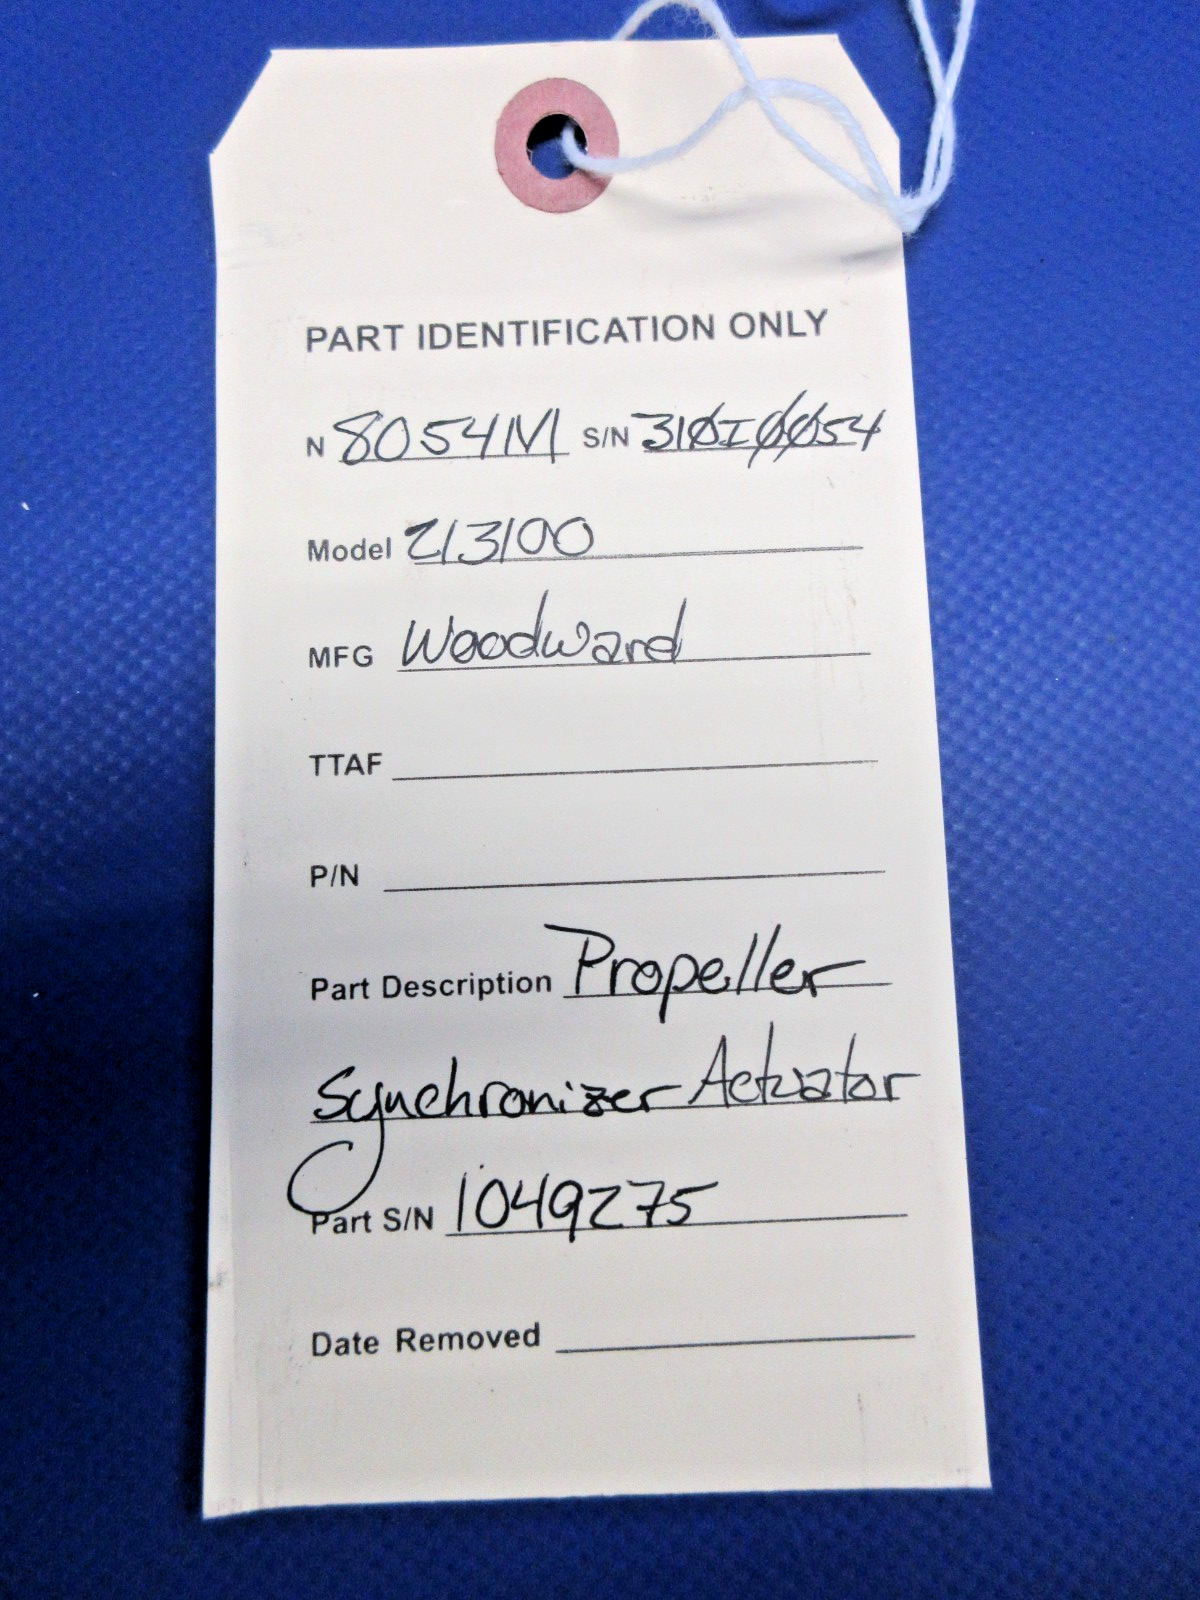 PART IDENTIFICATION ONLY
N 8054M S/N 310I0054
Model 213100
MFG Woodward
TTAF
P/N
Part Description Propeller
Synchronizer Actuator
Part S/N 1049275
Date Removed